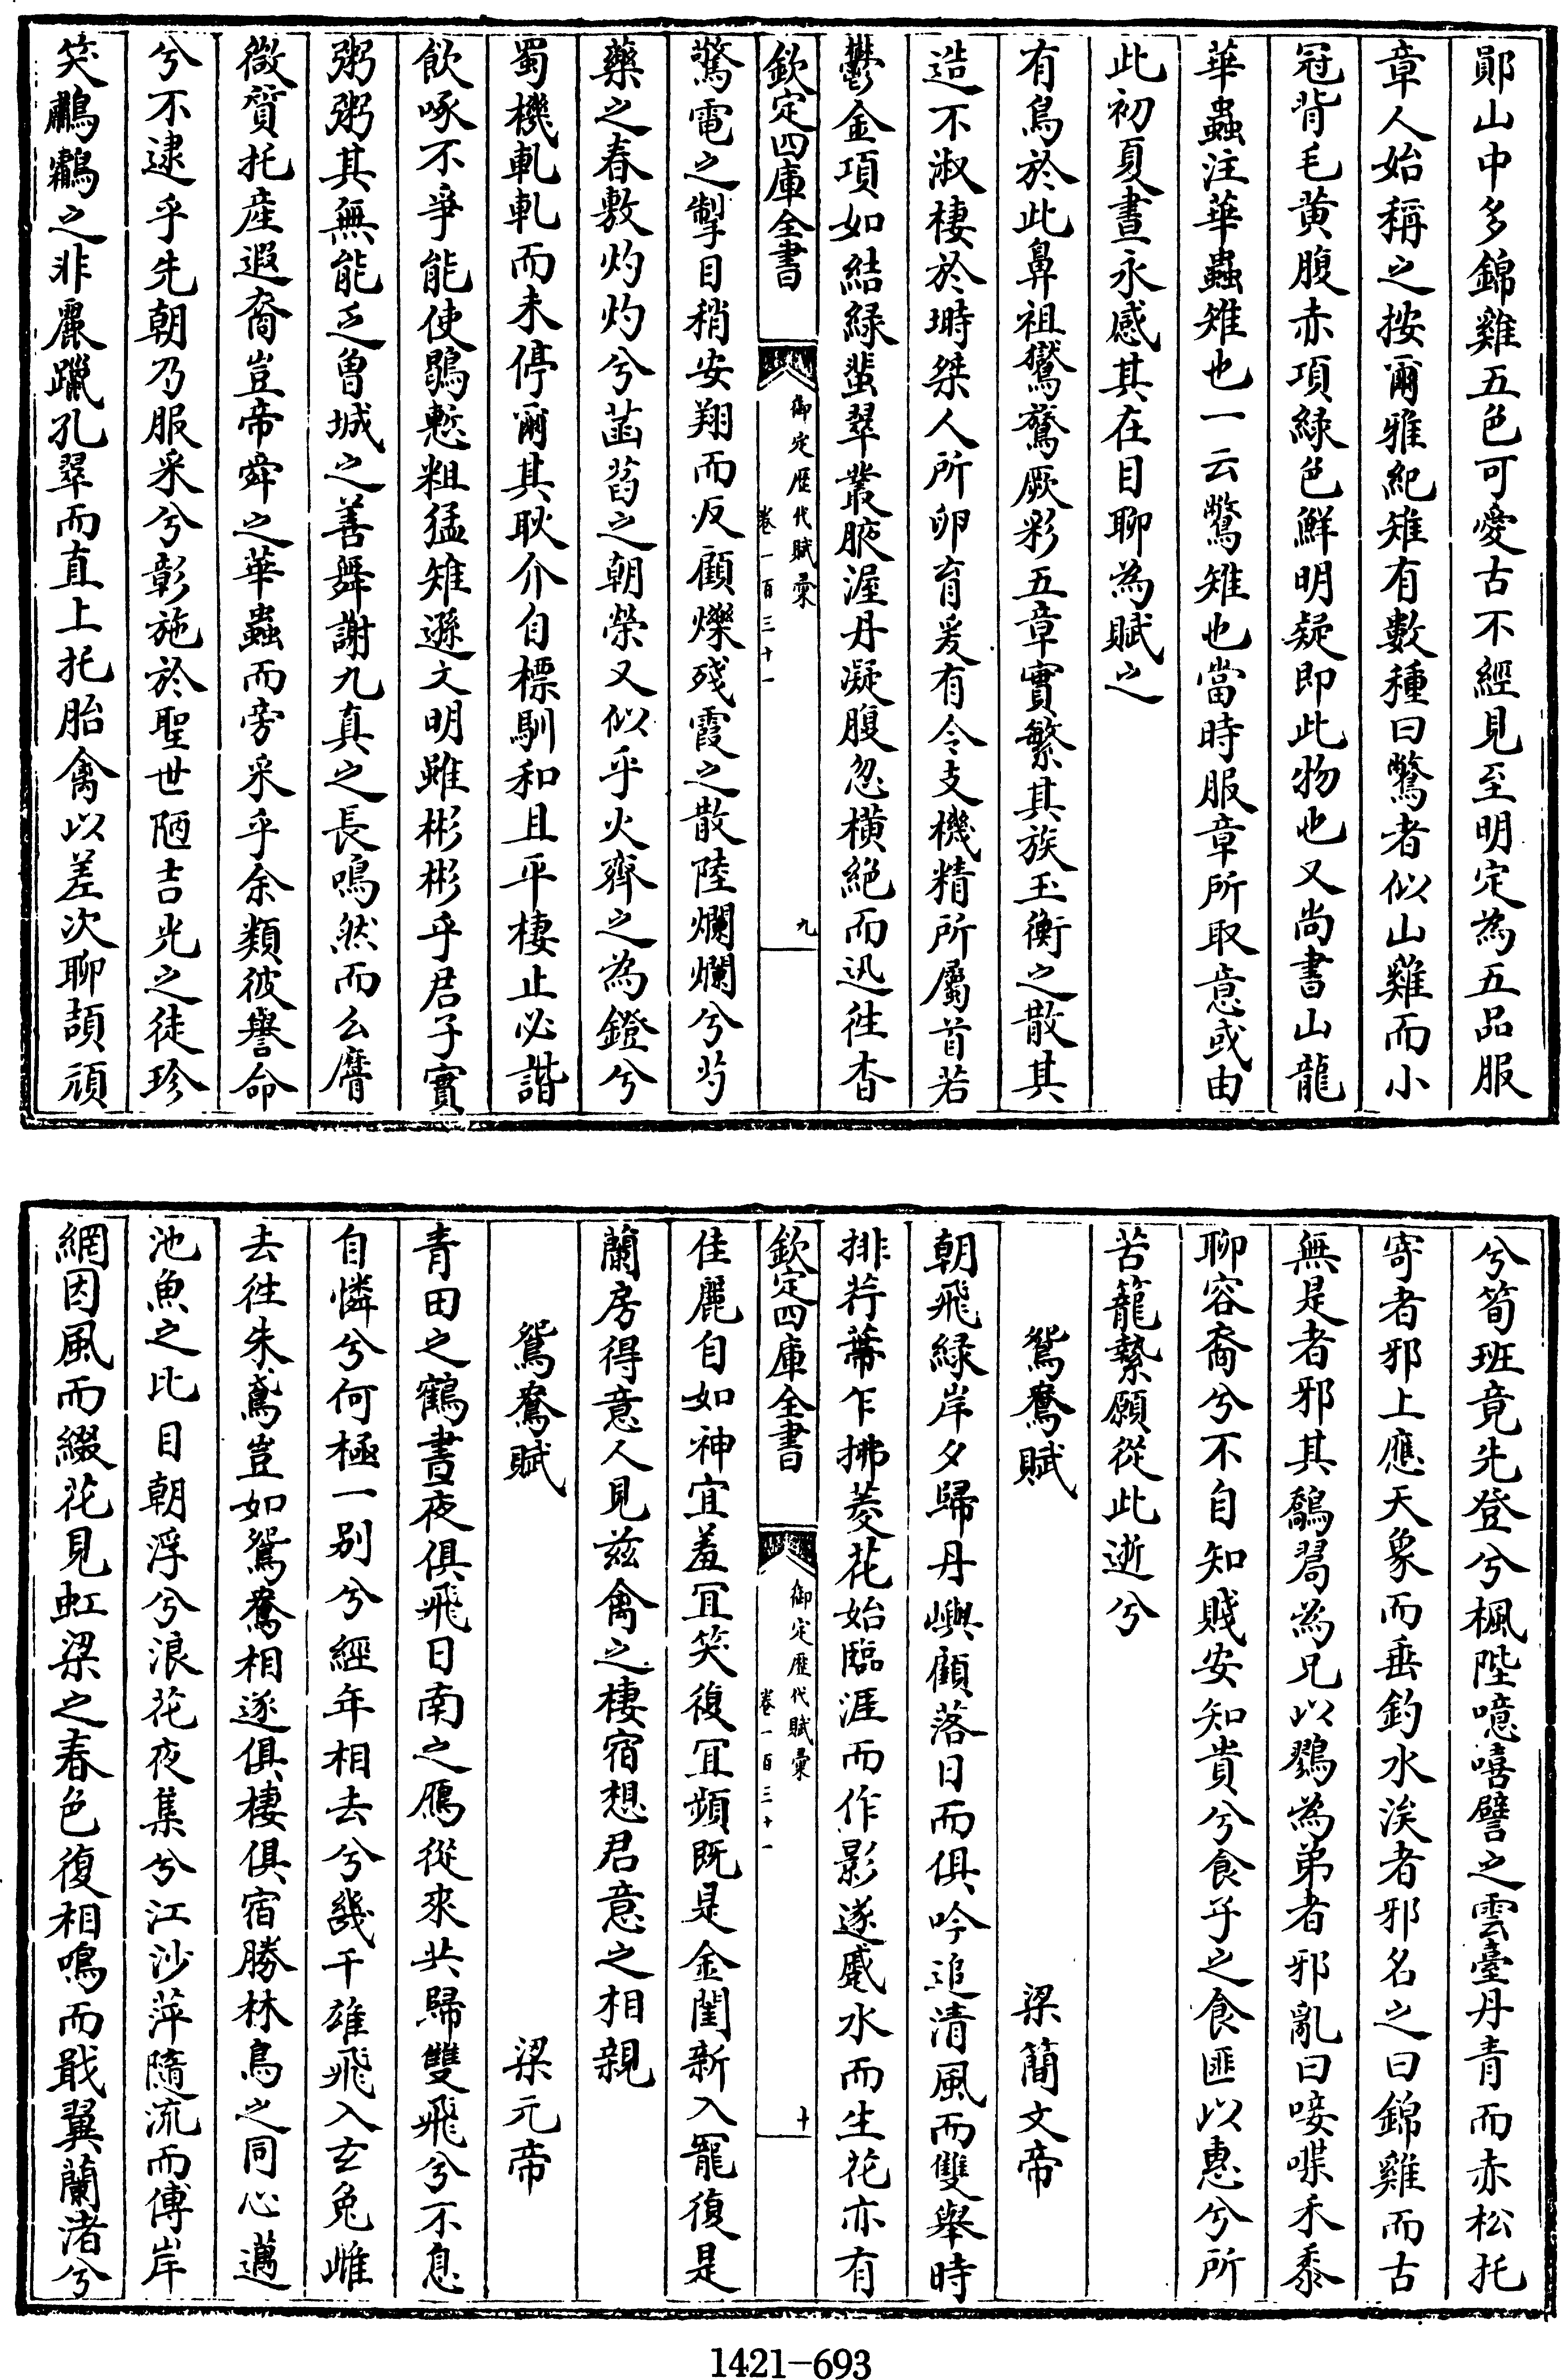 鄖山中多錦雞五色可愛古不經見至明定為五品服
章人始稱之按爾雅紀雉有數種曰鷩者似山雞而小
冠背毛黄腹赤項綠色鮮明疑即此物也又尚書山龍
華蟲注華蟲雉也一云鷩雉也當時服章所取意或由
此初夏晝永感其在目聊為賦之
有鳥於此鼻祖鸑鷟厥彩五章實繁其族玉衡之散其
造不淑棲於塒桀人所卵育爰有令支機精所屬首若
鬱金項如結綠蜚翠叢腋渥丹凝腹忽横絶而迅徃杳
欽定四庫全書
御定歴代賦彚
卷一百三十一
九
驚電之掣目稍安翔而反顧爍殘霞之散陸爛爛兮芍
藥之春敷灼灼兮菡萏之朝榮又似乎火齊之為鐙兮
蜀機軋軋而未停爾其耿介自標馴和且平棲止必諧
飲啄不爭能使鶡慙粗猛雉遜文明雖彬彬乎君子實
粥粥其無能乏曽城之善舞謝九真之長鳴然而么膺
微質托産遐裔豈帝舜之華蟲而旁采乎余類彼譽命
兮不逮乎先朝乃服采兮彰施於聖世陋吉光之徒珍
笑鷫鸘之非麗躐孔翠而直上托胎禽以差次聊頡頏
兮筍班竟先登兮楓陛噫嘻譬之雲臺丹青而赤松托
寄者邪上應天象而垂釣水涘者邪名之曰錦雞而古
無是者邪其鷸翯為兄以鷚為弟者邪亂曰唼喋禾黍
聊容裔兮不自知賤安知貴兮食乎之食匪以惠兮所
苦籠縶願從此逝兮
鴛鴦賦
梁簡文帝
朝飛綠岸夕歸丹嶼顧落日而俱吟追清風而雙舉時
排荇帶乍拂菱花始臨涯而作影遂蹙水而生花亦有
欽定四庫全書
御定歴代賦彚
卷一百三十一
十
佳麗自如神宜羞宜笑復宜嚬既是金閨新入寵復是
蘭房得意人見兹禽之棲宿想君意之相親
鴛鴦賦
梁元帝
青田之鶴晝夜俱飛日南之鴈從來共歸雙飛兮不息
自憐兮何極一别兮經年相去兮幾千雄飛入玄兔雌
去徃朱鳶豈如鴛鴦相逐俱棲俱宿勝林鳥之同心邁
池魚之比目朝浮兮浪花夜集兮江沙萍隨流而傅岸
網因風而綴花見虹梁之春色復相鳴而戢翼蘭渚兮
1421-693